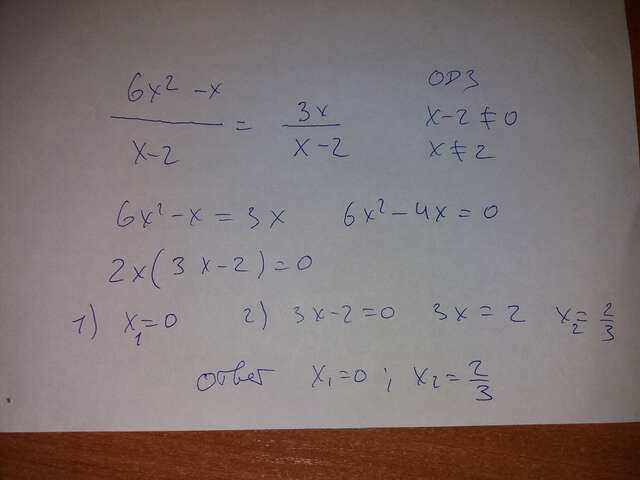 6x² - x / x-2 = 3x / x-2 ОДЗ x-2≠0 x≠2
6x² - x = 3x 6x² - 4x = 0
2x(3x-2)=0
1) x₁=0 2) 3x-2=0 3x=2 x₂=2/3
Ответ x₁=0; x₂=2/3